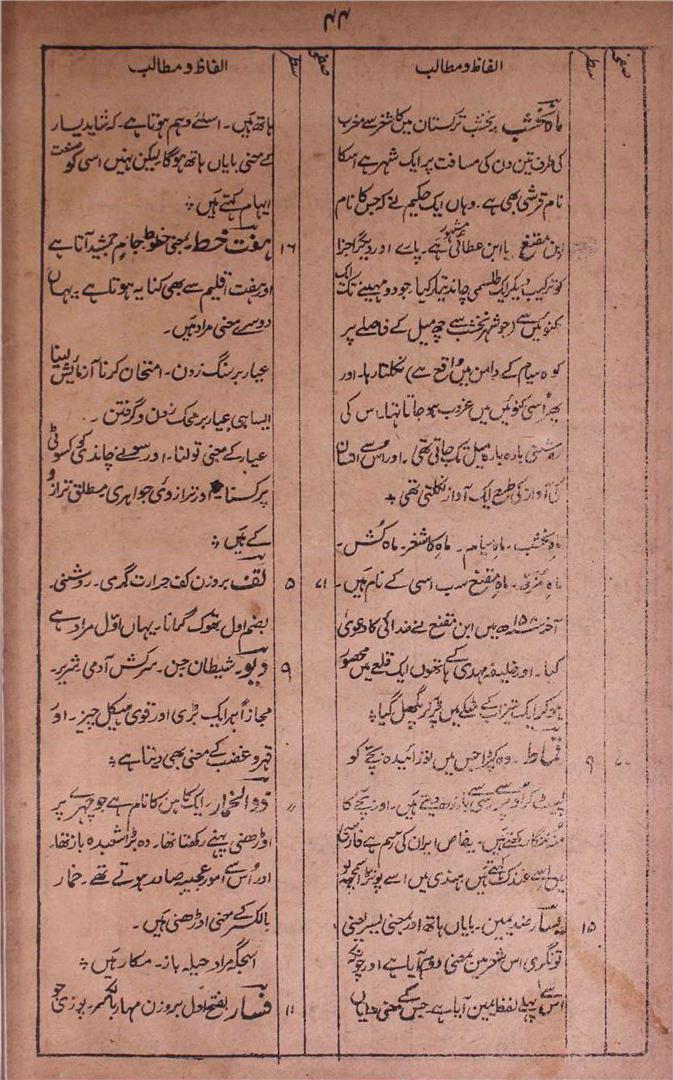 ۴۴
صفحہ
سطر
الفاظ و مطالب
ماہ نخشب۔ نخشب ترکستان میں کاشغر سے مغرب
کی طرف تین دن کی مسافت پر ایک شہر ہے اسکا
نام قرشی بھی ہے۔ وہاں ایک حکیم نے کہ جس کا نام
ابن مقنع یا ابن عطائی مشہور ہے۔ پارے اور دیگر اجزا
کو ترکیب دیکر ایک طلسمی چاند تیار کیا۔ جو دو مہینے تک ایک
کنوئیں سے (جو شہر نخشب سے چھ میل کے فاصلے پر
کوہ سیام کے دامن میں واقع ہے) نکلتا رہا۔ اور
پھر اسی کنوئیں میں غروب ہو جاتا تھا۔ اس کی
روشنی بارہ بارہ میل تک جاتی تھی۔ اور اس سے انسان
کی آواز کی طرح ایک آواز نکلتی تھی ٭
ماہ نخشب۔ ماہ سیام۔ ماہ کاشغر۔ ماہ کش۔
ماہ مقنع سب اسی کے نام ہیں۔
آخر ۱۵۸ھ میں ابن مقنع نے خدائی کا دعویٰ
کیا۔ اور خلیفہ مہدی کے ہاتھوں ایک قلعے میں محصور
ہو کر ایک تیزاب کے مٹکے میں گر کر پگھل گیا ٭
۹ قماط۔ وہ کپڑا جس میں نوزائیدہ بچے کو
لپیٹ کر اوپر سے رسی باندھ دیتے ہیں۔ اور بچے کا
منہ کھلا رکھتے ہیں۔ یہ خاص ایران کی رسم ہے فارسی
میں اسے کہتے ہیں۔ ہندی میں اسے پوتڑا سمجھو
۱۵ یسار ضد یمین۔ بایاں ہاتھ اور بمعنی یسر یعنی
تونگری اس شعر میں بمعنی دوم آیا ہے اور چونکہ
اس سے پہلے لفظ یمین آیا ہے جس کے معنی دایاں
صفحہ
سطر
الفاظ و مطالب
ہاتھ ہیں۔ اسلئے وہم ہوتا ہے۔ کہ شاید یسار
کے معنی بایاں ہاتھ ہوگا لیکن نہیں اسی کو صنعت
ایہام کہتے ہیں ٭
۱۶ ہفت خط۔ یعنی خطوط جام جمشید آتا ہے
اور ہفت اقلیم سے بھی کنایہ ہوتا ہے۔ یہاں
دوسرے معنی مراد ہیں۔
عیار بر سنگ زدن۔ امتحان کرنا آزمایش لینا
ایسا ہی عیار بر محک زدن و گرفتن۔
عیار کے معنی تولنا۔ اور سونے چاندی کو کسوٹی
پر کسنا و ترازوئی جواہری مطلق ترازو
کے ہیں ٭
۷۱ ۵ لقف بروزن کف حرارت گرمی۔ روشنی۔
بضم اول تھوک گرانا۔ یہاں اوّل مراد ہے
۹ دیو۔ شیطان جن۔ سرکش آدمی شریر۔
مجازاً ہر ایک بڑی اور قوی ہیکل چیز۔ اور
قہر و غضب کے معنی بھی دیتا ہے ٭
〃 ذوالخمار۔ ایک کاہن کا نام ہے جو چہرے پر
اوڑھنی پہنے رکھتا تھا۔ وہ بڑا شعبدہ باز تھا۔
اور اُس سے امور عجیبہ صادر ہوتے تھے۔ خمار
بالکسر کے معنی اوڑھنی ہیں۔
اسجگہ مراد حیلہ باز۔ مکار ہیں ٭
۱۱ فسار بفتح اوّل بروزن مہار بالکسر۔ پوزی جو